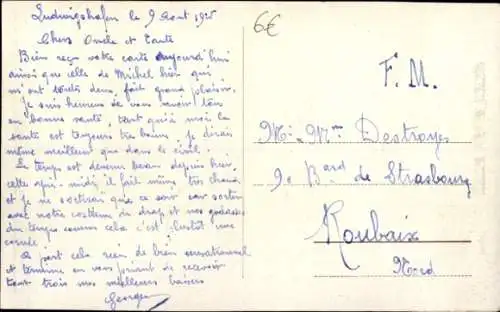 Ludwigshafen le 9 Aout 1925
Chers Oncle et Tante
Bien reçu votre carte aujourd'hui
ainsi que celle de Michel hier qui
m'ont toutes deux fait grand plaisir.
Je suis heureux de vous savoir tous
en bonne santé, tant qu'à moi la
santé est toujours très bonne, je dirais
même meilleur que dans le civil.
Le temps est devenu beau depuis hier,
cette après-midi, il fait même très chaud
et je ne sortirai que ce soir car sortir
avec notre costume de drap et nos godasses
du temps comme cela c'est plutôt une
corvée.
A part cela rien de bien sensationnel
et termine en vous priant de recevoir
tout trois mes meilleurs baisers
Georges
6€
F.M.
Mr. Mme Destroyes
9c Bard de Strasbourg
Roubaix
Nord